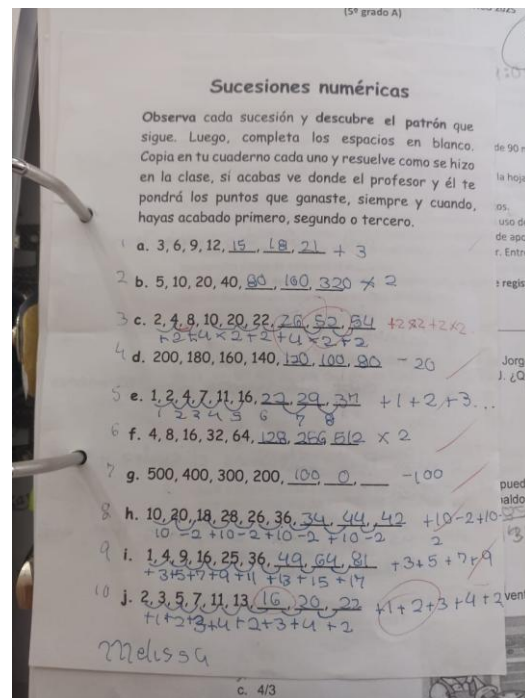 (5º grado A)
Sucesiones numéricas
Observa cada sucesión y descubre el patrón que
sigue. Luego, completa los espacios en blanco.
Copia en tu cuaderno cada uno y resuelve como se hizo
en la clase, si acabas ve donde el profesor y él te
pondrá los puntos que ganaste, siempre y cuando,
hayas acabado primero, segundo o tercero.
1 a. 3, 6, 9, 12, 15, 18, 21 + 3
2 b. 5, 10, 20, 40, 80, 160, 320 × 2
3 c. 2, 4, 8, 10, 20, 22, 26, 52, 54 +2×2+2×2
+2+4×2+2+4×2+2
4 d. 200, 180, 160, 140, 120, 100, 80 - 20
5 e. 1, 2, 4, 7, 11, 16, 22, 29, 37 +1+2+3...
1 2 3 4 5 6 7 8
6 f. 4, 8, 16, 32, 64, 128, 256, 512 × 2
7 g. 500, 400, 300, 200, 100, 0, ___ -100
8 h. 10, 20, 18, 28, 26, 36, 34, 44, 42 +10-2+10-
2
10-2+10-2+10-2+10-2
9 i. 1, 4, 9, 16, 25, 36, 49, 64, 81 +3+5+7+9
+3+5+7+9+11+13+15+17
10 j. 2, 3, 5, 7, 11, 13, 16, 20, 22 +1+2+3+4+2
+1+2+3+4+2+3+4+2
Melissa
c. 4/3
de 90
la hoja
os.
uso d
de apo
r. Entr
regis
Jorg
J. ¿Q
pued
naldo
ven